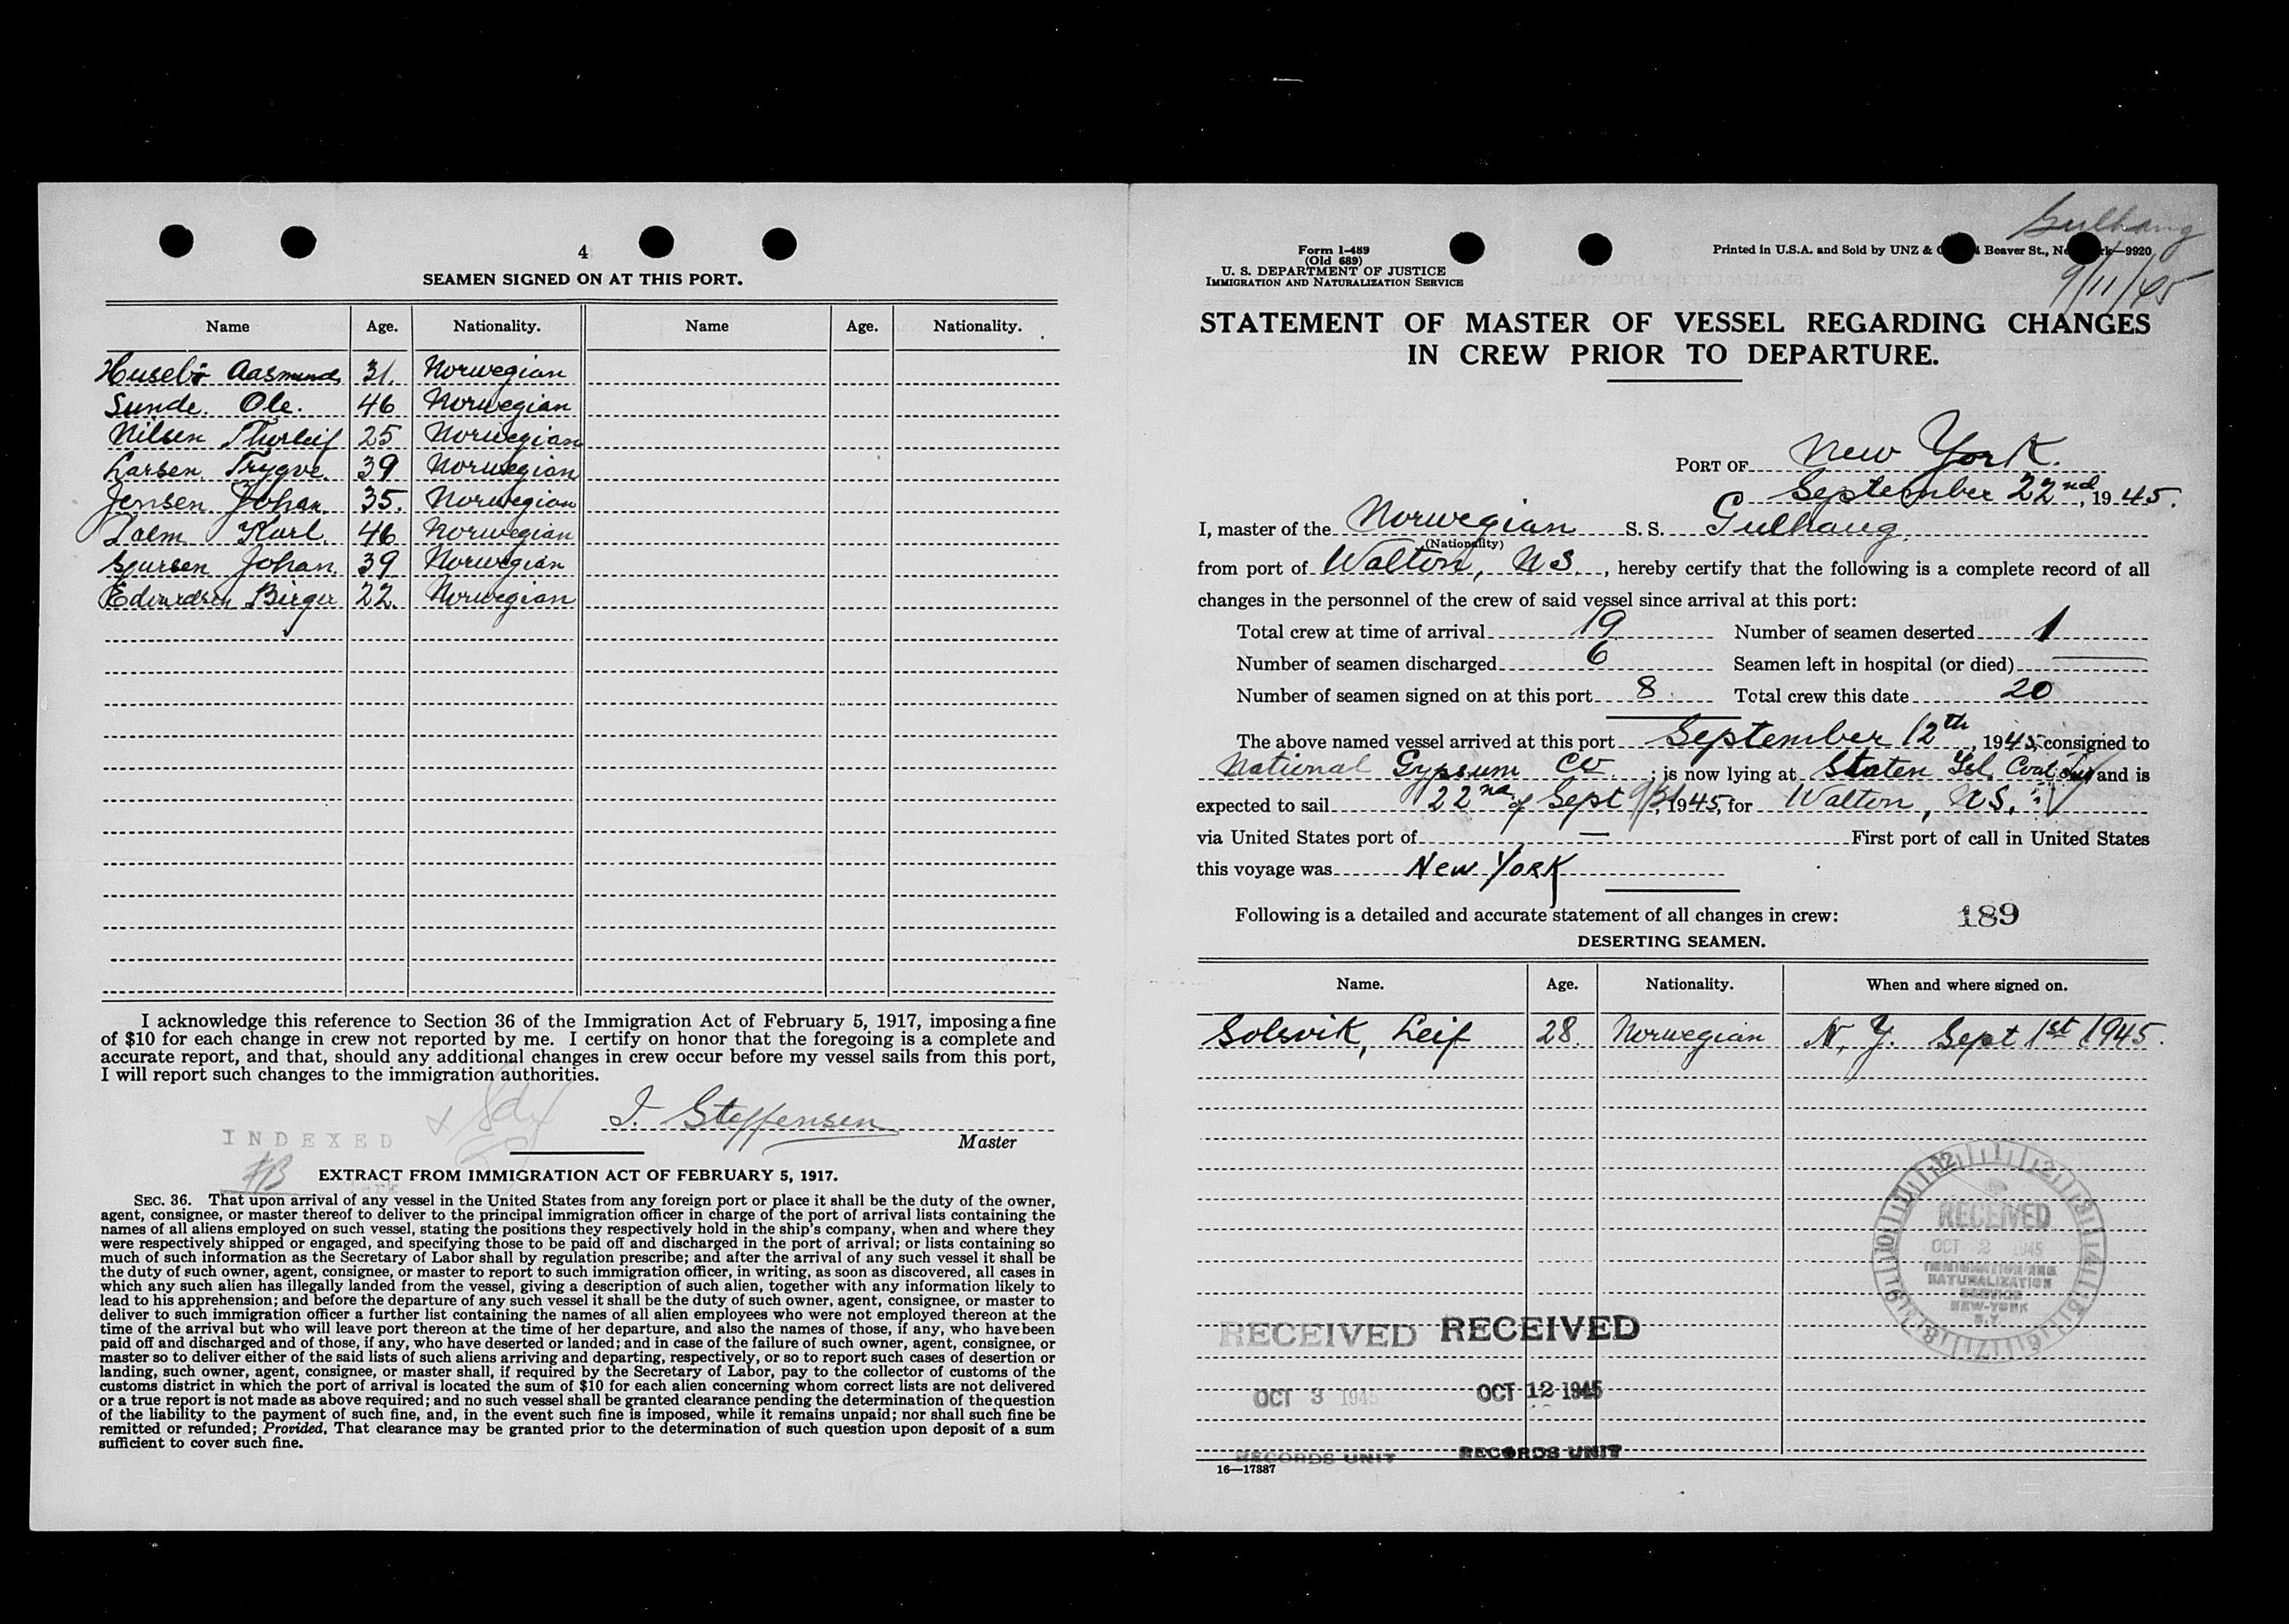 4
SEAMEN SIGNED ON AT THIS PORT.
Name Age. Nationality. Name Age. Nationality.
Huselö Aasmund 31. Norwegian
Sunde. Ole. 46 Norwegian
Nilsen Thorleif 25 Norwegian
Larsen. Trygve. 39 Norwegian
Jensen Johan. 35. Norwegian
Karl. 46 Norwegian
Johan. 39 Norwegian
Edvardsen Birger 22. Norwegian
I acknowledge this reference to Section 36 of the Immigration Act of February 5, 1917, imposing a fine
of $10 for each change in crew not reported by me. I certify on honor that the foregoing is a complete and
accurate report, and that, should any additional changes in crew occur before my vessel sails from this port,
I will report such changes to the immigration authorities.
I. Steffensen
Master
INDEXED
EXTRACT FROM IMMIGRATION ACT OF FEBRUARY 5, 1917.
SEC. 36. That upon arrival of any vessel in the United States from any foreign port or place it shall be the duty of the owner,
agent, consignee, or master thereof to deliver to the principal immigration officer in charge of the port of arrival lists containing the
names of all aliens employed on such vessel, stating the positions they respectively hold in the ship's company, when and where they
were respectively shipped or engaged, and specifying those to be paid off and discharged in the port of arrival; or lists containing so
much of such information as the Secretary of Labor shall by regulation prescribe; and after the arrival of any such vessel it shall be
the duty of such owner, agent, consignee, or master to report to such immigration officer, in writing, as soon as discovered, all cases in
which any such alien has illegally landed from the vessel, giving a description of such alien, together with any information likely to
lead to his apprehension; and before the departure of any such vessel it shall be the duty of such owner, agent, consignee, or master to
deliver to such immigration officer a further list containing the names of all alien employees who were not employed thereon at the
time of the arrival but who will leave port thereon at the time of her departure, and also the names of those, if any, who have been
paid off and discharged and of those, if any, who have deserted or landed; and in case of the failure of such owner, agent, consignee, or
master so to deliver either of the said lists of such aliens arriving and departing, respectively, or so to report such cases of desertion or
landing, such owner, agent, consignee, or master shall, if required by the Secretary of Labor, pay to the collector of customs of the
customs district in which the port of arrival is located the sum of $10 for each alien concerning whom correct lists are not delivered
or a true report is not made as above required; and no such vessel shall be granted clearance pending the determination of the question
of the liability to the payment of such fine, and, in the event such fine is imposed, while it remains unpaid; nor shall such fine be
remitted or refunded; Provided, That clearance may be granted prior to the determination of such question upon deposit of a sum
sufficient to cover such fine.
Gulhaug
9/11/45
Form I-489
(Old 689)
U. S. DEPARTMENT OF JUSTICE
IMMIGRATION AND NATURALIZATION SERVICE
Printed in U.S.A. and Sold by UNZ & Beaver St., 9920
STATEMENT OF MASTER OF VESSEL REGARDING CHANGES
IN CREW PRIOR TO DEPARTURE.
PORT OF New York.
September 22nd, 1945.
I, master of the Norwegian S. S. Gulhaug,
(Nationality)
from port of Walton, N.S., hereby certify that the following is a complete record of all
changes in the personnel of the crew of said vessel since arrival at this port:
Total crew at time of arrival 19 Number of seamen deserted 1
Number of seamen discharged 6 Seamen left in hospital (or died) —
Number of seamen signed on at this port 8. Total crew this date 20
The above named vessel arrived at this port September 12th, 1945, consigned to
National Gypsum Co.; is now lying at Staten Isl. Coal and is
expected to sail 22nd of Sept 1945, for Walton, N.S.
via United States port of — First port of call in United States
this voyage was New York
Following is a detailed and accurate statement of all changes in crew:
189
DESERTING SEAMEN.
Name. Age. Nationality. When and where signed on.
Solsvik, Leif 28. Norwegian N.Y. Sept 1st 1945.
RECEIVED
OCT 2 1945
IMMIGRATION AND
NATURALIZATION
SERVICE
NEW-YORK
N.Y.
RECEIVED RECEIVED
OCT 3 1945 OCT 12 1945
RECORDS UNIT RECORDS UNIT
16—17387